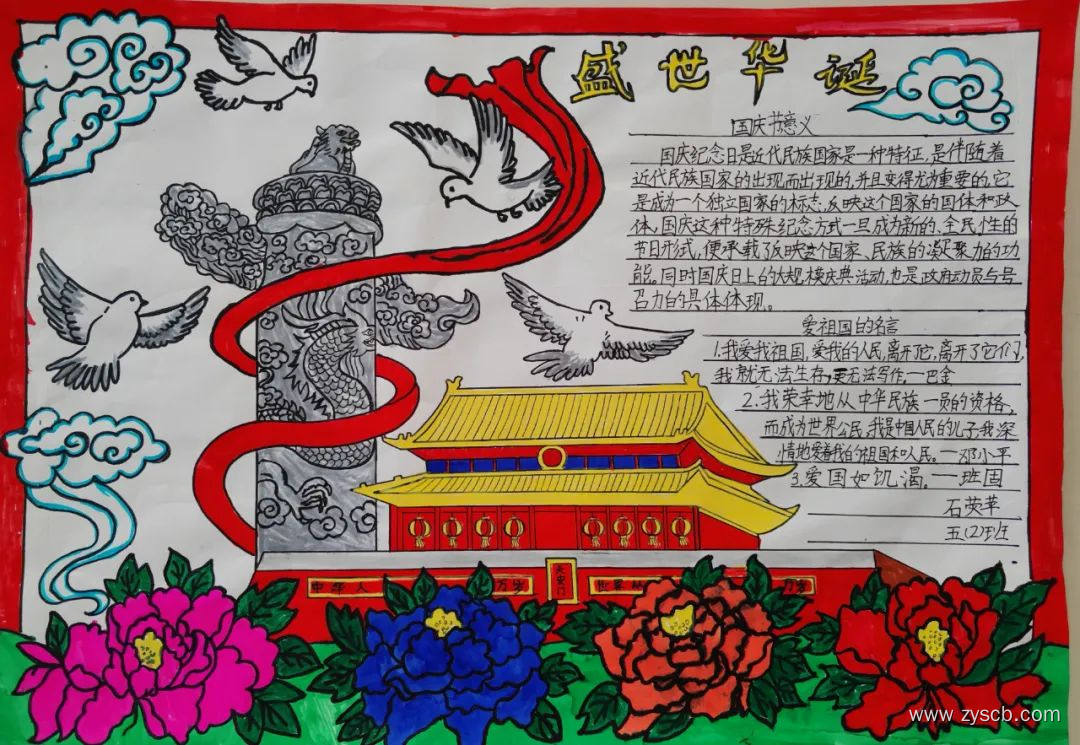 盛世华诞
国庆节意义
国庆纪念日是近代民族国家是一种特征,是伴随着
近代民族国家的出现而出现的,并且变得尤为重要的,它
是成为一个独立国家的标志,反映这个国家的国体和政
体,国庆这种特殊纪念方式一旦成为新的、全民性的
节日形式,便承载了反映这个国家、民族的凝聚力的功
能。同时国庆日上的大规模庆典活动,也是政府动员与号
召力的具体体现。
爱祖国的名言
1.我爱我祖国,爱我的人民,离开了它,离开了它们,
我就无法生存,更无法写作。—巴金
2.我荣幸地从中华民族一员的资格,
而成为世界公民,我是中国人民的儿子我深
情地爱着我的祖国和人民。—邓小平
3.爱国如饥渴。—班固
石荧苹
五(2)班
中华人 万岁
天安门
世界 万岁
www.zyscb.com